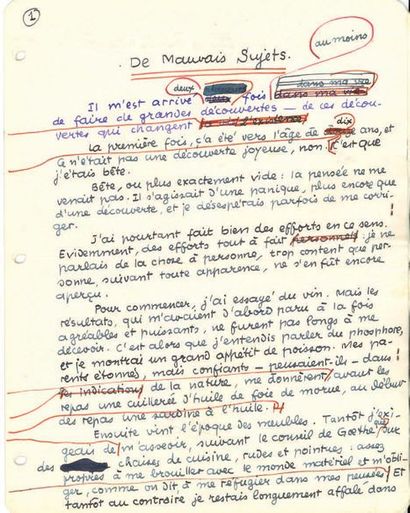 1
De Mauvais Sujets.
au moins
deux
dans ma vie
Il m'est arrivé fois dans ma vie
de faire de grandes découvertes — de ces décou-
vertes qui changent
dix
la première fois, ç'a été vers l'âge de ans, et
ce n'était pas une découverte joyeuse, non. C'est que
j'étais bête.
Bête, ou plus exactement vide : la pensée ne me
venait pas. Il s'agissait d'une panique, plus encore que
d'une découverte, et je désespérais parfois de me corri-
ger.
J'ai pourtant fait bien des efforts en ce sens.
Évidemment, des efforts tout à fait personnels : je ne
parlais de la chose à personne, trop content que per-
sonne, suivant toute apparence, ne s'en fût encore
aperçu.
Pour commencer, j'ai essayé du vin. Mais les
résultats, qui m'avaient d'abord paru à la fois
agréables et puissants, ne furent pas longs à me
décevoir. C'est alors que j'entendis parler du phosphore,
et je montrai un grand appétit de poisson. Mes pa-
rents étonnés, mais confiants — pensaient-ils — dans
les indications de la nature, me donnèrent, avant les
repas une cuillerée d'huile de foie de morue, au début
des repas une sardine à l'huile.
Ensuite vint l'époque des meubles. Tantôt j'exi-
geais de m'asseoir, suivant le conseil de Gœthe, sur
des chaises de cuisine, rudes et pointues : assez
propres à me brouiller avec le monde matériel et m'obli-
ger, comme on dit, à me réfugier dans mes pensées. Et
tantôt au contraire je restais longuement affalé dans